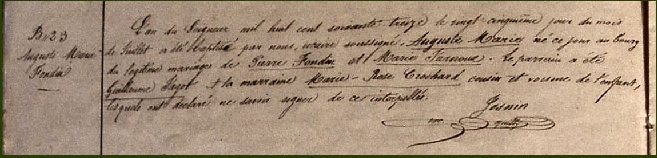 B. 33
Auguste Marie
Fondin
L'an du Seigneur mil huit cent soixante treize le vingt cinquième jour du mois
de Juillet a été baptisé par nous, vicaire soussigné, Auguste Marie né ce jour au bourg
du légitime mariage de Pierre Fondin et Marie. Le parrain a été
Guillaume et la marraine Marie-Rose Crochard cousin et cousine de l'enfant,
lesquels ont déclaré ne savoir signer de ce interpellés.